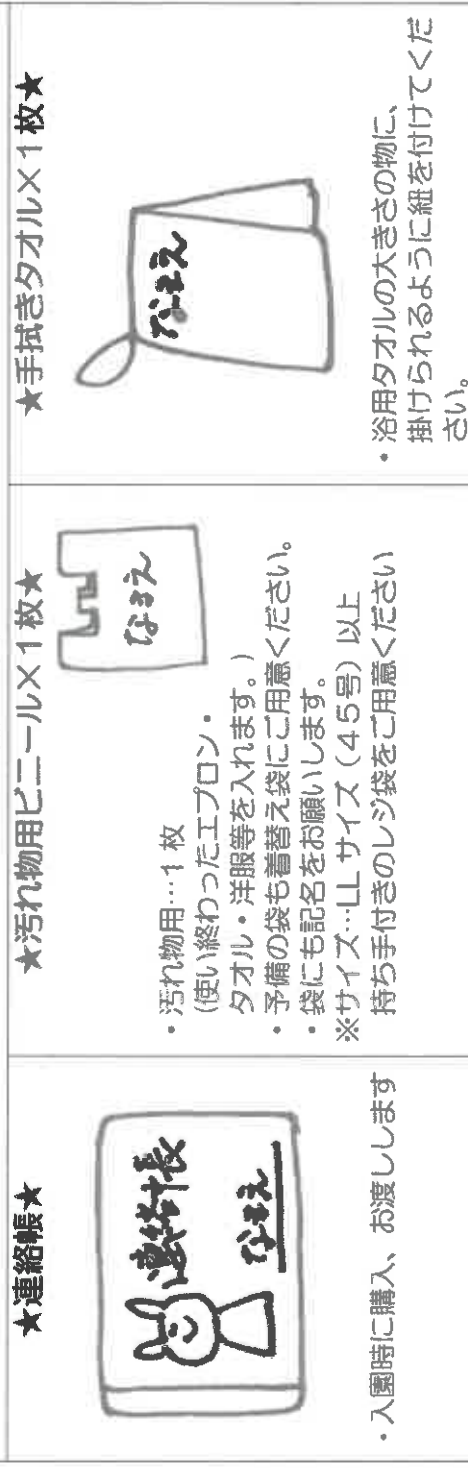 ★連絡帳★
連絡帳
なまえ
・入園時に購入、お渡しします
★汚れ物用ビニール×1枚★
なまえ
・汚れ物用…1枚
(使い終わったエプロン・
タオル・洋服等を入れます。)
・予備の袋も着替え袋にご用意ください。
・袋にも記名をお願いします。
※サイズ…LLサイズ(45号)以上
持ち手付きのレジ袋をご用意ください
★手拭きタオル×1枚★
なまえ
・浴用タオルの大きさの物に、
掛けられるように紐を付けてくだ
さい。